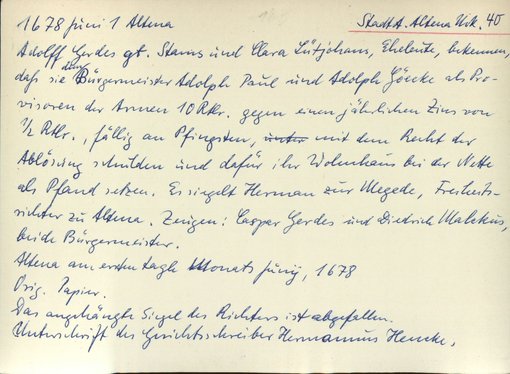 1678 Juni 1 Altena
StadtA. Altena Urk. 40
Adolff Gerdes gt. Stams und Clara Lütjohans, Eheleute, bekennen,
daß sie den Bürgermeister Adolph Paul und Adolph Göcke als Pro-
visoren der Armen 10 Rtlr. gegen einen jährlichen Zins von
1/2 Rtlr., fällig an Pfingsten, unter mit dem Recht der
Ablösung schulden und dafür ihr Wohnhaus bei der Nette
als Pfand setzen. Es siegelt Herman zur Megede, Freiheits-
richter zu Altena. Zeugen: Caspar Gerdes und Diedrich Malckus,
beide Bürgermeister.
Altena am ersten tagh Monats Junij, 1678
Orig. Papier.
Das angehängte Siegel des Richters ist abgefallen.
Unterschrift des Gerichtsschreiber Hermannus Hencke.